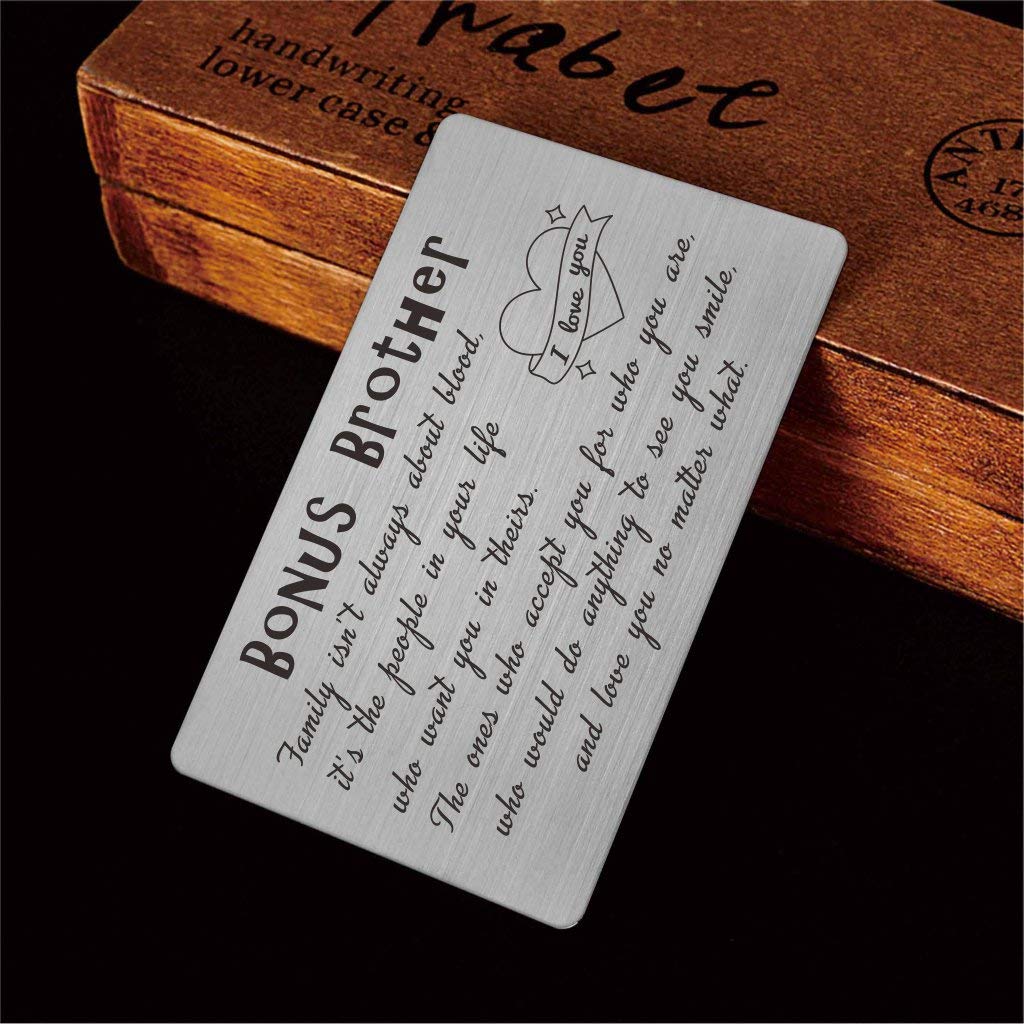 handwriting
lower case &
BONUS BrotHer
I love you
Family isn't always about blood,
it's the people in your life
who want you in theirs.
The ones who accept you for who you are,
who would do anything to see you smile,
and love you no matter what.